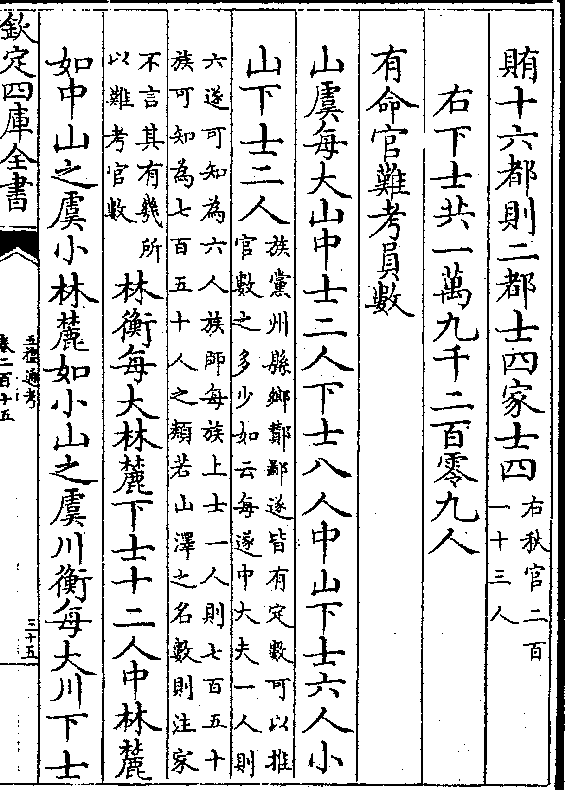 賄十六都則二都士四家士四右秋官二百一十三人
右下士共一萬九千二百零九人
有命官難考員數
山虞每大山中士二人下士八人中山下士六人小
山下士二人族黨州縣鄉酇鄙遂皆有定數可以推
官數之多少如云每遂中大夫一人則
六遂可知為六人族師每族上士一人則七百五十
族可知為七百五十人之類若山澤之名數則注家
不言其有幾所
以難考官數林衡每大林麓下士十二人中林麓
如中山之虞小林麓如小山之虞川衡每大川下士
欽定四庫全書
五禮通考
卷二百十五
三十五